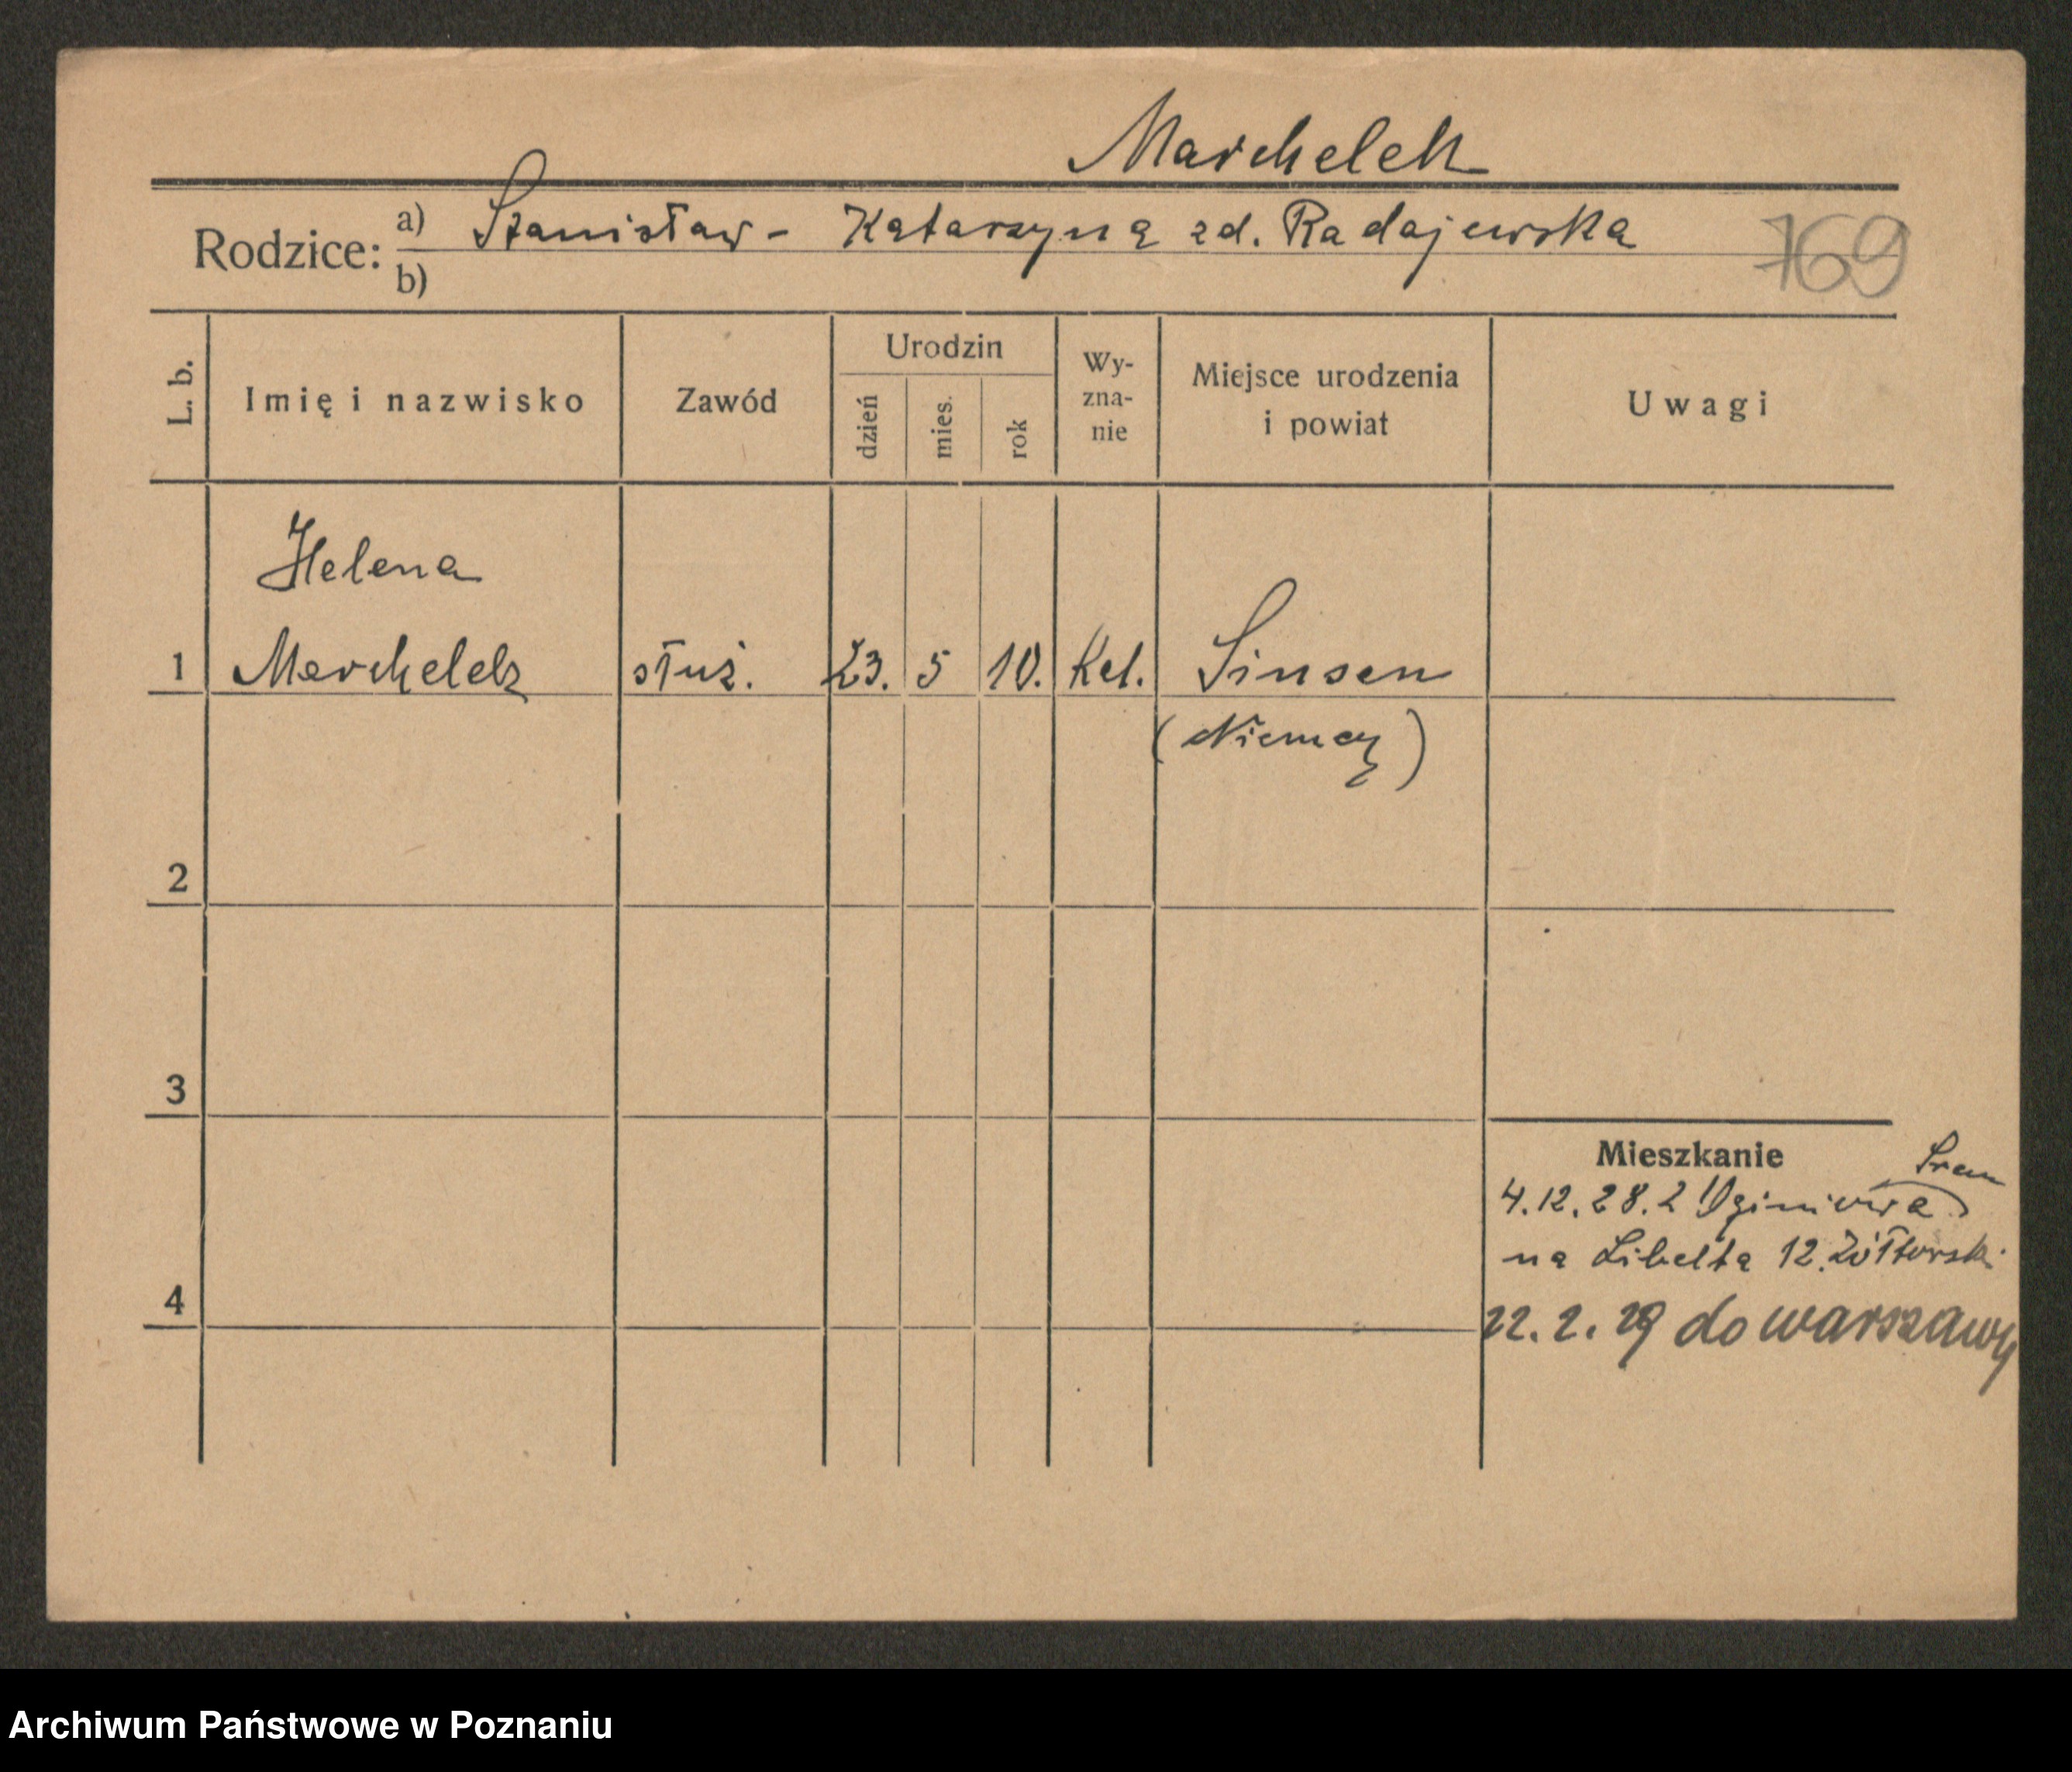 Marchelek
Rodzice: a) Stanisław - Katarzyna zd. Radajewska
b)
769
L. b.
Imię i nazwisko
Zawód
Urodzin
dzień
mies.
rok
Wy-
zna-
nie
Miejsce urodzenia
i powiat
Uwagi
Helena
1 Marchelek służ. 23. 5 10. Kat. Sinsen
(Niemcy)
2
3
Mieszkanie
Śrem
4.12.28. z
na Libelta 12. Żółtowski
4
22. 2. 29 do warszawy
Archiwum Państwowe w Poznaniu